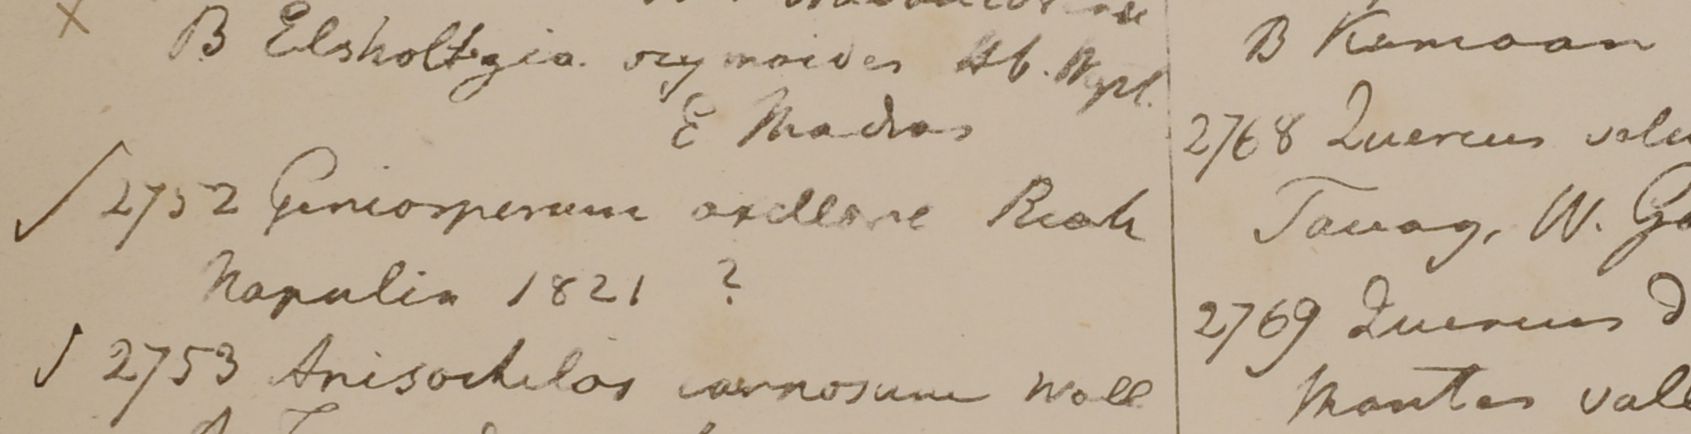 B Elsholtzia ocymoides Hb. Wgt.
E Madras
2752 Geniosperum axillare Rich
Napulia 1821 ?
2753 Anisochilos carnosum Wall
B Kumaon
2768 Quercus velu
Tavoy, W. Go
2769 Quercus d
Montes vall